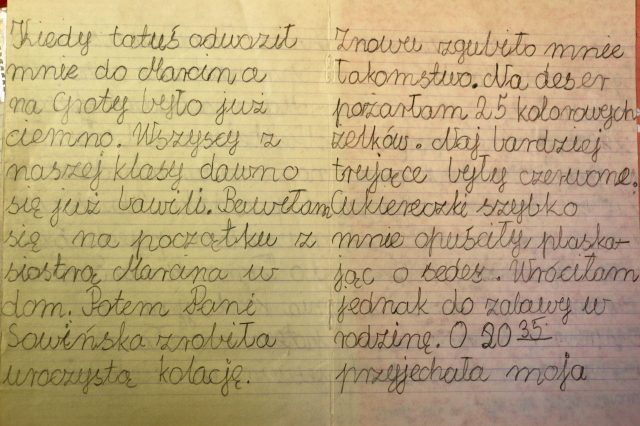 Kiedy tatuś odwoził
mnie do Marcina
na Grotej było już
ciemno. Wszyscy z
naszej klasy dawno
się już bawili. Bawiłam
się na początku z
siostrą Marcina w
dom. Potem Pani
Sowińska zrobiła
uroczystą kolację.
Znowu zgubiło mnie
łakomstwo. Na deser
pożarłam 25 kolorowych
żelków. Naj bardziej
trujące były czerwone.
Cukiereczki szybko
mnie opuściły plaska-
jąc o sedes. Wróciłam
jednak do zabawy w
rodzinę. O 20 35
przyjechała moja